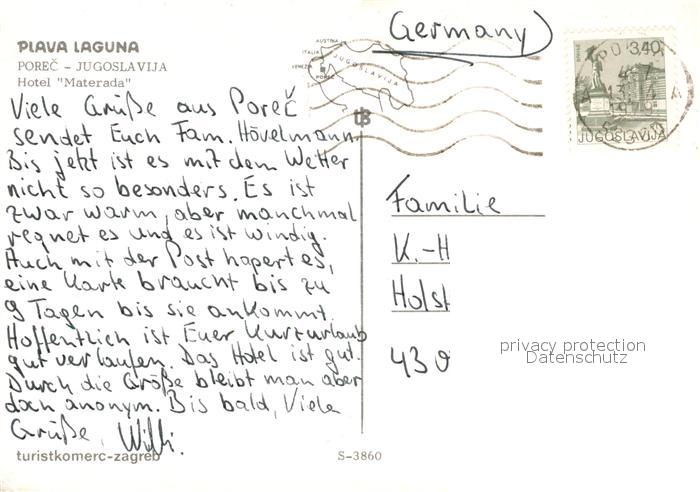 Germany)
PLAVA LAGUNA
POREČ – JUGOSLAVIJA
Hotel "Materada"
AUSTRIJA
ITALIA
VENEZIA
POREČ
JUGOSLAVIJA
3,40
JUGOSLAVIJA
Viele Grüße aus Poreč
sendet Euch Fam. Hövelmann.
Bis jetzt ist es mit dem Wetter
nicht so besonders. Es ist
zwar warm, aber manchmal
regnet es und es ist windig.
Auch mit der Post hapert es,
eine Karte braucht bis zu
9 Tagen bis sie ankommt.
Hoffentlich ist Euer Kurzurlaub
gut verlaufen. Das Hotel ist gut.
Durch die Größe bleibt man aber
doch anonym. Bis bald, Viele
Grüße, Willi.
Familie
K.-H
Holst
430
privacy protection
Datenschutz
turistkomerc-zagreb
S-3860